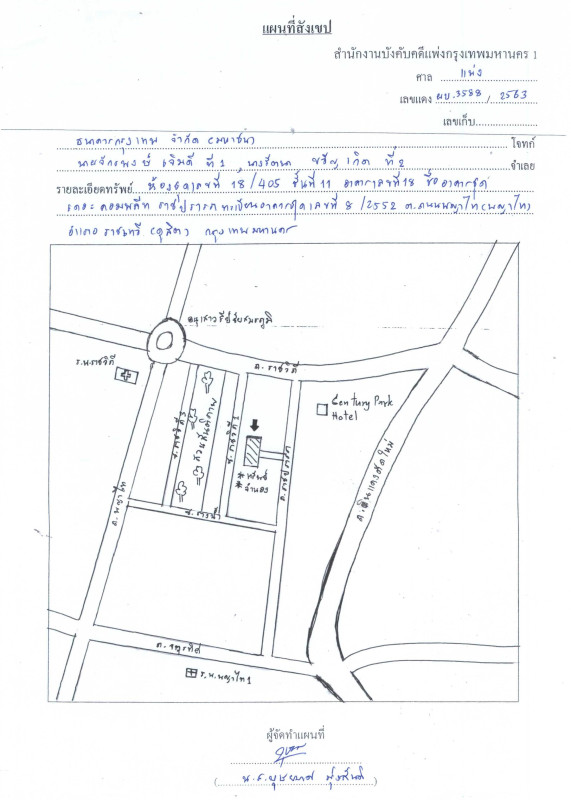 แผนที่สังเขป
สำนักงานบังคับคดีแพ่งกรุงเทพมหานคร 1
ศาล แพ่ง
เลขแดง ผบ.3588 / 2563
เลขเก็บ
ธนาคารกรุงเทพ จำกัด (มหาชน) โจทก์
ที่ 1 , ที่ 2 จำเลย
รายละเอียดทรัพย์ ห้องชุดเลขที่ 18/405 ชั้นที่ 11 อาคารเลขที่ 18 ชื่ออาคารชุด
เดอะ คอมพลีท ราชปรารภ ทะเบียนอาคารชุดเลขที่ 8/2552 ต.ถนนพญาไท (พญาไท)
อำเภอ ราชเทวี (ดุสิต) กรุงเทพมหานคร
อนุสาวรีย์ชัยสมรภูมิ
ร.พ.ราชวิถี
ถ.ราชวิถี
Century Park
Hotel
ซ.ราชวิถี 3
สวนสันติภาพ
ซ.ราชวิถี 1
ทรัพย์
จำนอง
ถ.ราชปรารภ
ถ.พญาไท
ซ.รางน้ำ
ถ.ดินแดงตัดใหม่
ถ.ศรีอยุธยา
ร.พ.พญาไท 1
ผู้จัดทำแผนที่